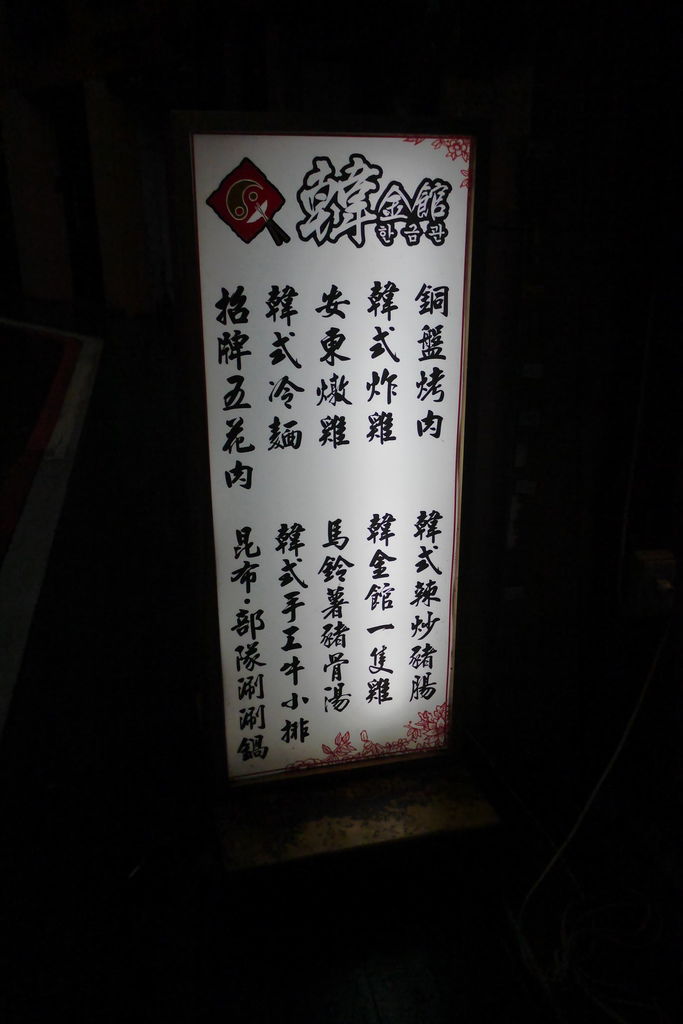 韓金館
한금관
銅盤烤肉
韓式炸雞
安東燉雞
韓式冷麵
招牌五花肉
韓式辣炒豬腸
韓金館一隻雞
馬鈴薯豬骨湯
韓式手工牛小排
昆布·部隊涮涮鍋